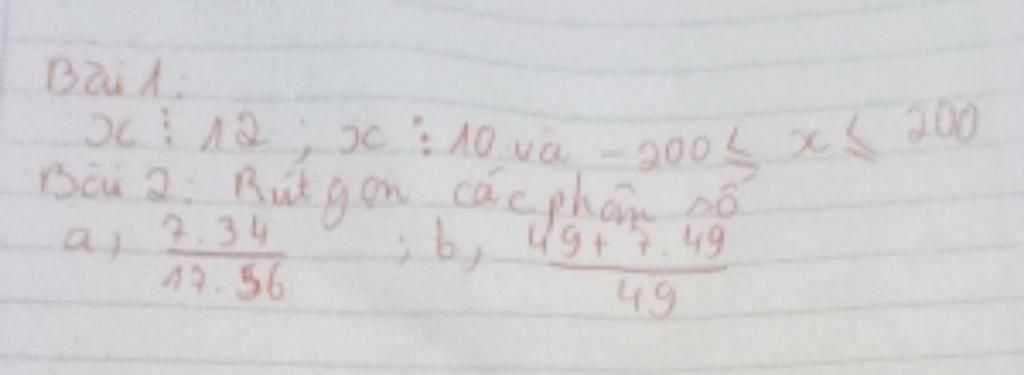 Bài 1:
x ⋮ 12 ; x ⋮ 10 và -200 ≤ x ≤ 200
Bài 2: Rút gọn các phân số
a, 7.34/17.56 ; b, 49+7.49/49